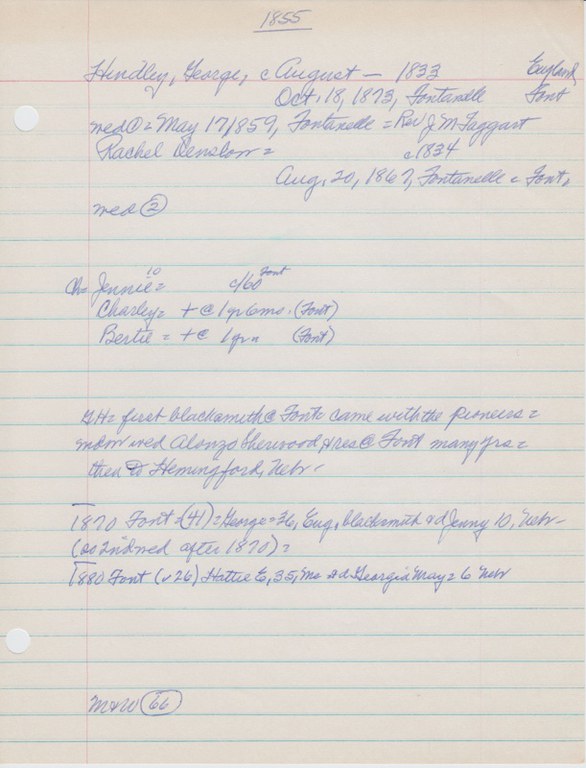 1855
Hindley, George, c August — 1833 England
Oct, 18, 1873, Fontanelle Font
med ① = May 17/1859, Fontanelle = Rev J. M Taggart
Rachel Denslow = c 1834
Aug, 20, 1867, Fontanelle c Font,
med ②
Ch= Jennie 10 = c/60 Font
Charley = + @ 1 yr 6 mo. (Font)
Bertie = + @ 1 yr (Font)
G H = first blacksmith @ Font = came with the pioneers =
widow med Alonzo Sherwood & res @ Font many yrs =
then to Hemingford, Nebr -
1870 Font = (41) = George = 36, Eng, blacksmith & d Jenny 10, Nebr -
(so 2nd med after 1870) =
1880 Font (v 26) Hattie E, 35, Mo & d Georgia May = 6 Nebr
M & W (66)